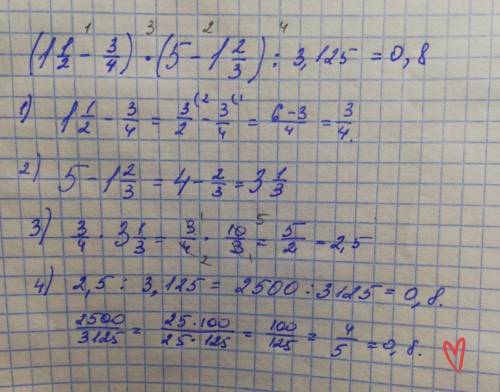 1 3 2 4
(1 1/2 - 3/4) · (5 - 1 2/3) : 3,125 = 0,8
1) 1 1/2 - 3/4 = 3/2 (2 - 3/4 (1 = 6-3/4 = 3/4.
2) 5 - 1 2/3 = 4 - 2/3 = 3 1/3
3) 3/4 · 3 1/3 = 3/4 1 2 · 10/3 5 1 = 5/2 = 2,5
4) 2,5 : 3,125 = 2500 : 3125 = 0,8.
2500/3125 = 25·100/25·125 = 100/125 = 4/5 = 0,8.